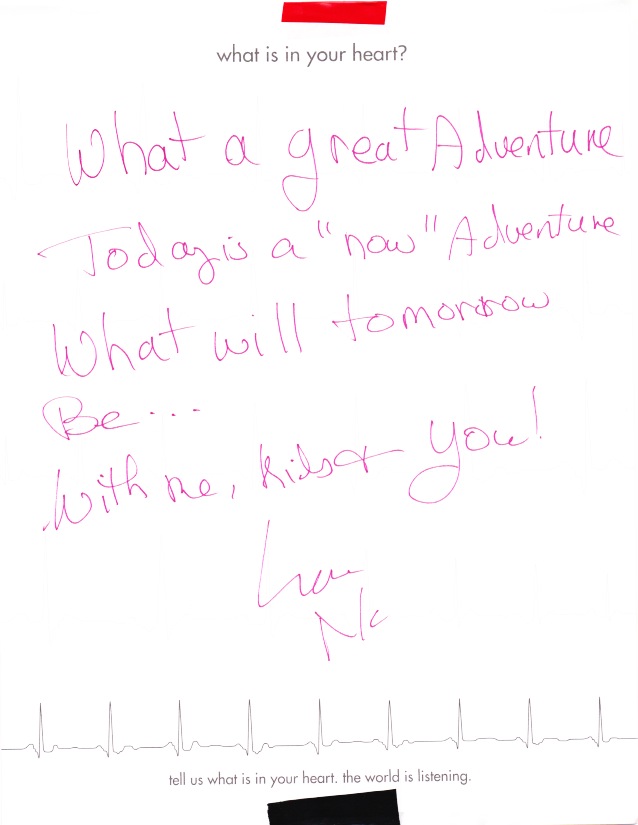 what is in your heart?
What a great Adventure
Today is a "now" Adventure
What will tomorrow
Be...
With me, kids & you!
tell us what is in your heart. the world is listening.